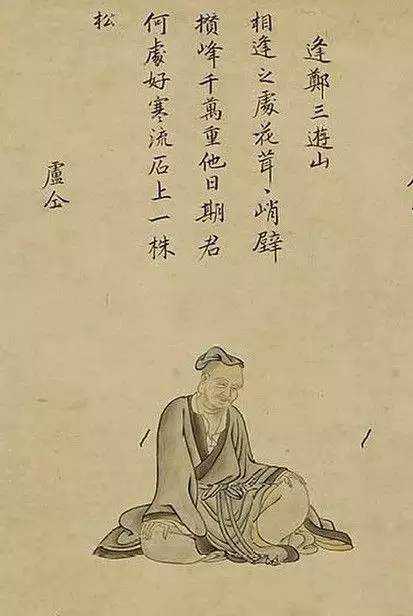 逢鄭三遊山
相逢之處花茸、峭壁
攅峰千萬重他日期君
何處好寒流石上一株
松
盧仝